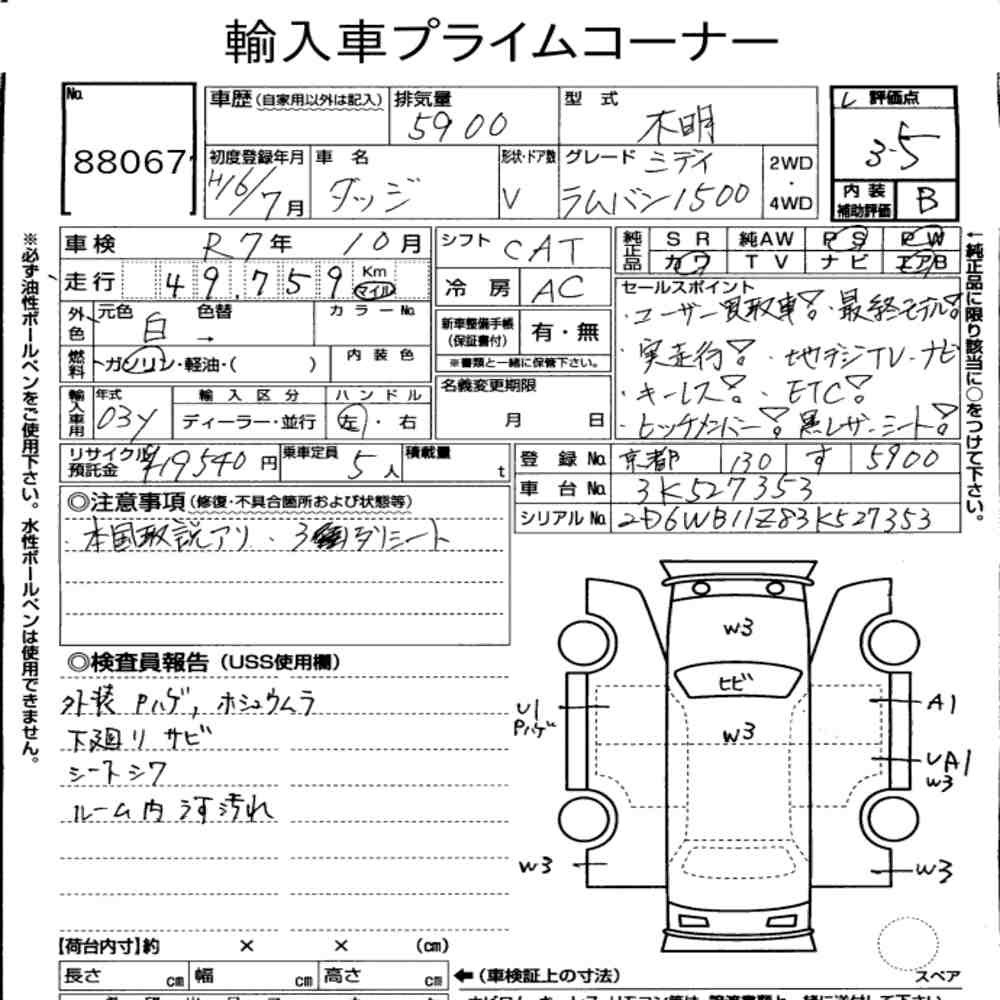 輸入車プライムコーナー
No. 88067
車歴 (自家用以外は記入) 排気量 5900 型式 不明
初度登録年月 H16/7月 車名 ダッジ 形状・ドア数 V グレード ミディ ラムバン1500 2WD・4WD
レ 評価点 3.5
内装補助評価 B
※必ず油性ボールペンをご使用下さい。水性ボールペンは使用できません。
車検 R7年 10月
走行 49,759 Km マイル
外色 元色 白 色替 → カラーNo.
燃料 ガソリン・軽油・( ) 内装色
輸入車用 年式 03y 輸入区分 ディーラー・並行 ハンドル 左・右
シフト CAT
冷房 AC
新車整備手帳(保証書付) 有・無
※書類と一緒に保管下さい。
名義変更期限 月 日
純正品 SR 純AW PS PW
カワ TV ナビ エアB
セールスポイント
・ユーザー買取車! ・最終モデル!
・実走行! ・地デジTV・ナビ
・キーレス! ・ETC!
・ヒッチメンバー! ・黒レザーシート!
←純正品に限り該当に○をつけて下さい。
リサイクル預託金 ¥19540円 乗車定員 5人 積載量 t
登録No. 京都 130 す 5900
車台No. 3K527353
シリアルNo. 2D6WB11Z83K527353
◎注意事項 (修復・不具合箇所および状態等)
・本国取説アリ ・3列シート
◎検査員報告 (USS使用欄)
外装 Pハゲ, ホシュウムラ
下廻り サビ
シートシワ
ルーム内 汚れ
W3
ヒビ
W3
U1
Pハゲ
A1
UA1
W3
W3
W3
スペア
【荷台内寸】約 × × (cm)
長さ cm 幅 cm 高さ cm ←(車検証上の寸法)